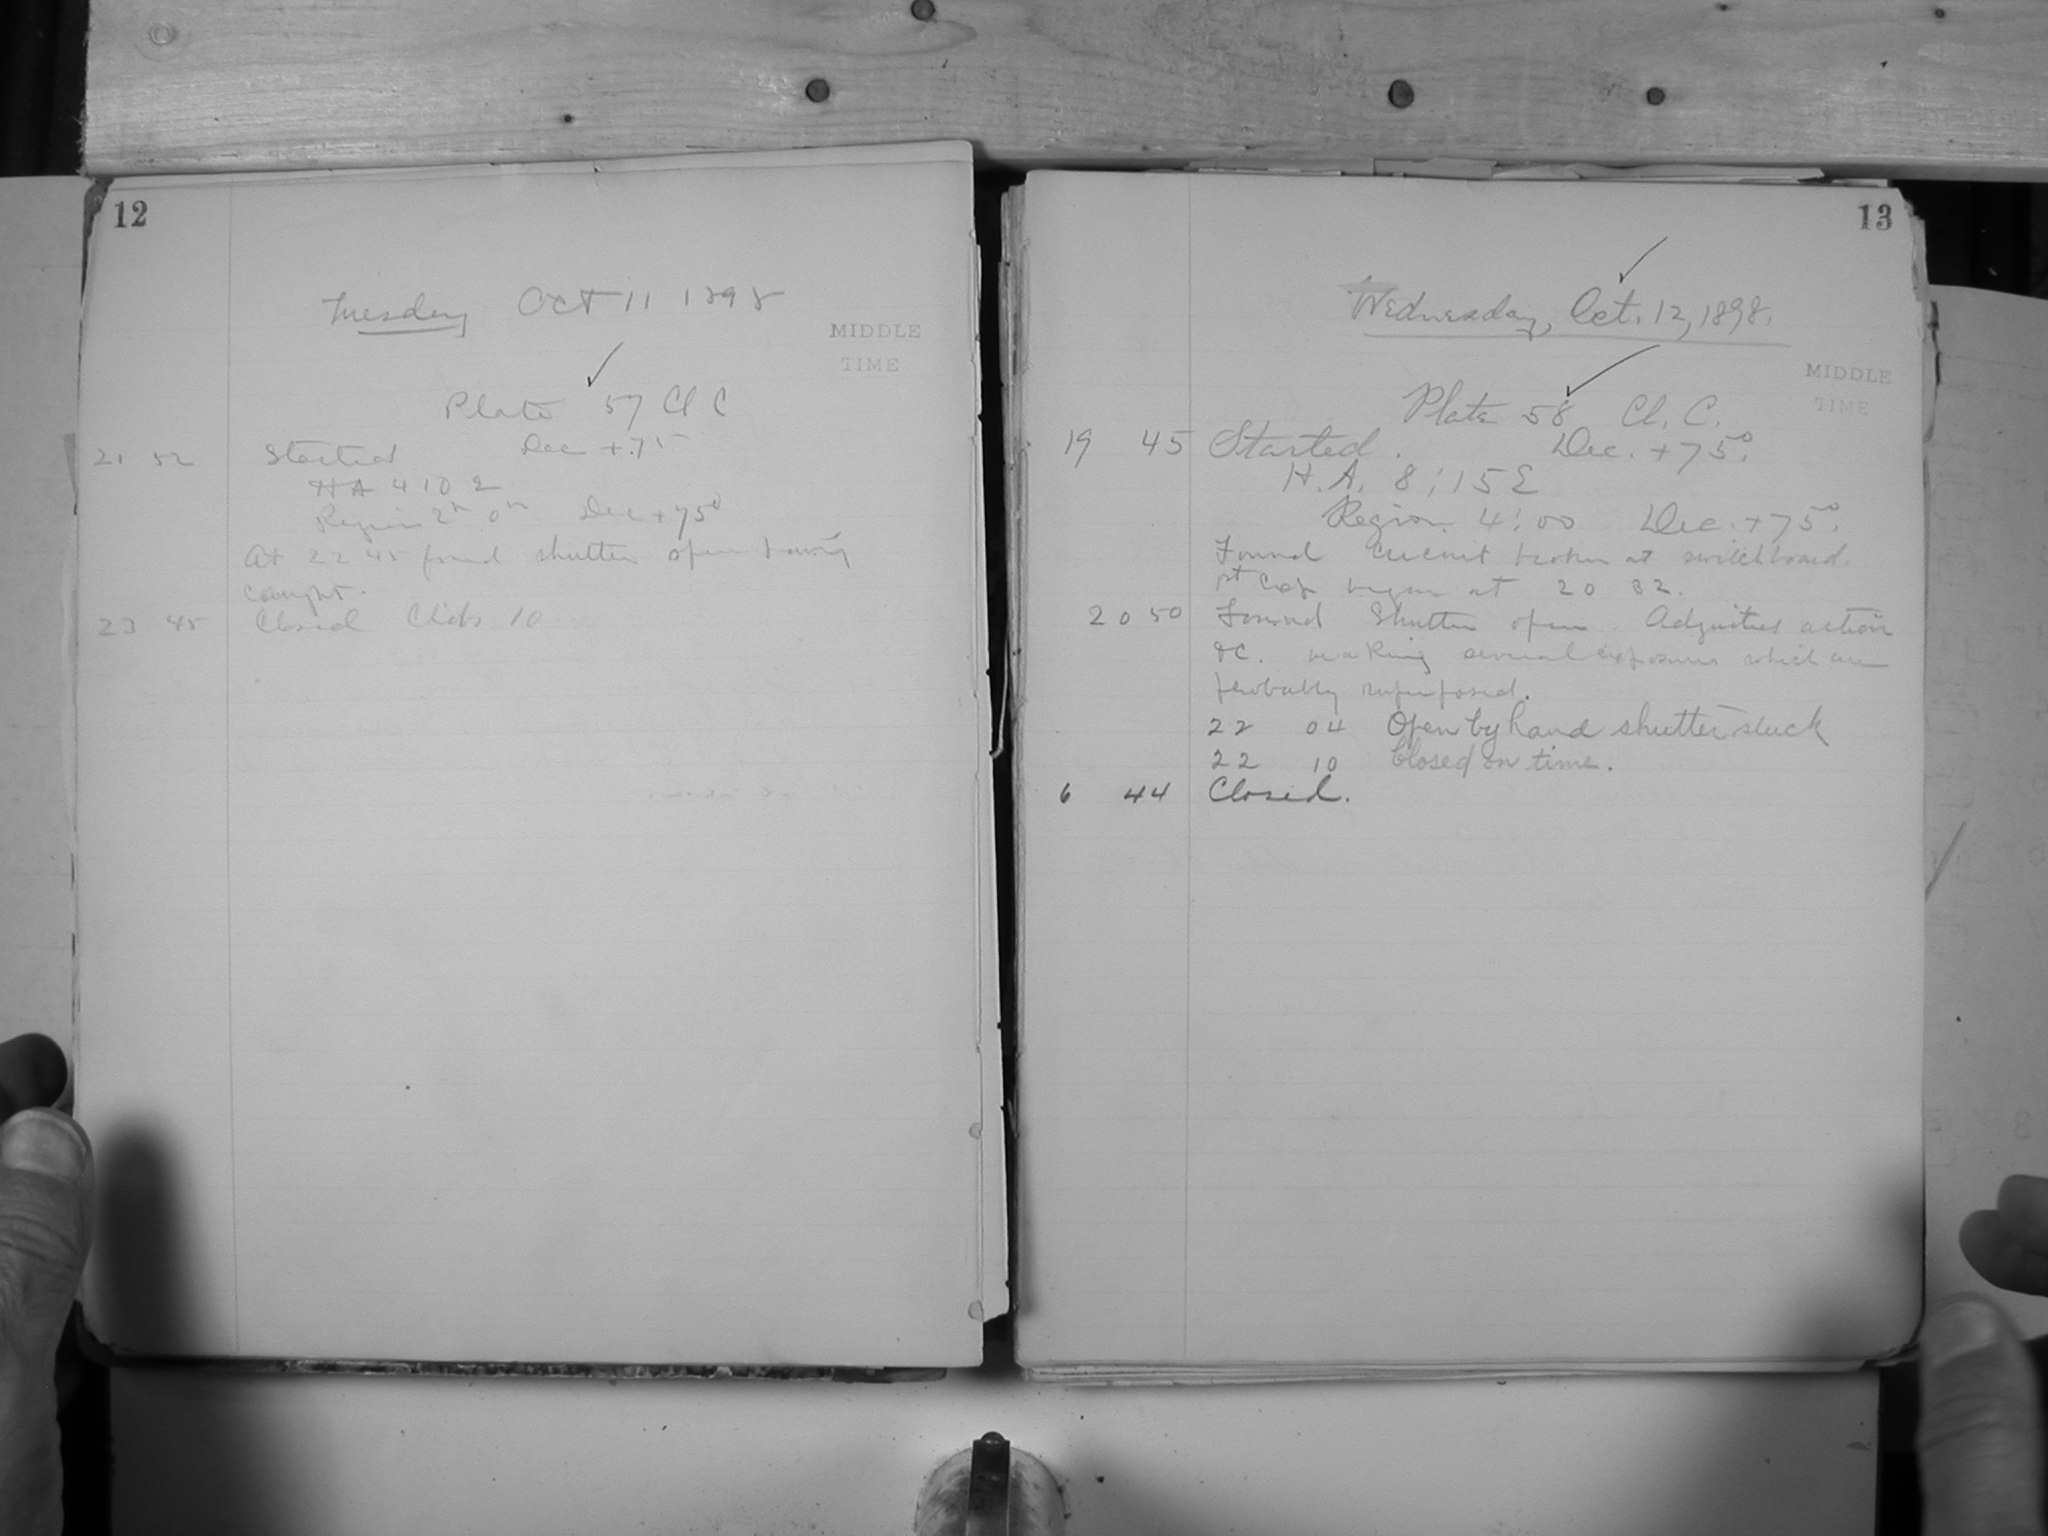 12
Tuesday Oct 11 1898
MIDDLE
TIME
Plate 57 Cl C
21 52 Started Dec +75
HA 4 10 E
Region 2h 0m Dec +75°
At 22 45 found shutter open having
caught.
23 45 Closed Clids 10
13
Wednesday, Oct. 12, 1898.
MIDDLE
TIME
Plate 58 Cl. C.
19 45 Started. Dec. +75°.
H.A. 8:15 E
Region 4:00 Dec. +75°.
Found circuit broken at switchboard.
1st Exp. began at 20 32.
20 50 Found Shutter open. Adjusted action
&c. making several exposures which are
probably superposed.
22 04 Open by hand shutter stuck
22 10 Closed on time.
6 44 Closed.